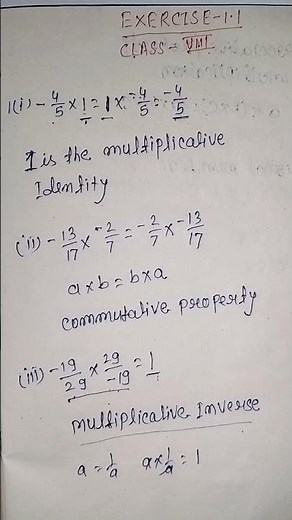 EXERCISE-1.1
CLASS- VIII
1(i) -4/5 × 1 = 1 × -4/5 = -4/5
1 is the multiplicative
Identity
(ii) -13/17 × -2/7 = -2/7 × -13/17
a×b = b×a
commutative property
(iii) -19/29 × 29/-19 = 1
Multiplicative Inverse
a = 1/a a×1/a = 1